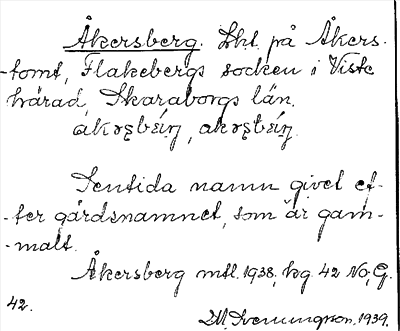 Åkersberg. Lht. på Åkers-
-tomt, Flakebergs socken i Viste
härad, Skaraborgs län.
Sentida namn givet ef-
-ter gårdsnamnet, som är gam-
-malt.
Åkersberg mtl. 1938, kg. 42 No, G.
42.
1939.